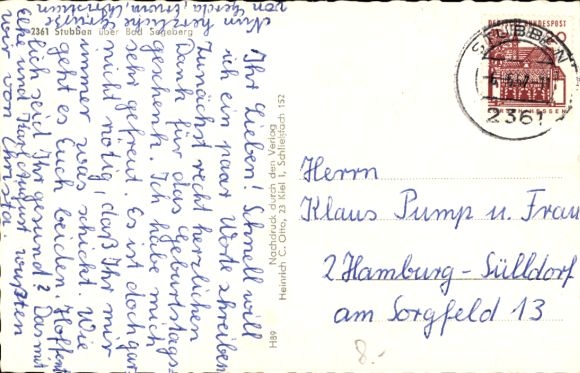 2361 Stubben über Bad Segeberg
Ihr Lieben! Schnell will
ich ein paar Worte schreiben
Zunächst recht herzlichen
Dank für das Geburtstags-
geschenk. Ich habe mich
sehr gefreut. Es ist doch gar
nicht nötig, daß Ihr mir
immer was schickt. Wie
geht es Euch beiden. Hoffent
lich seid Ihr gesund? Das mit
Elke und August wußten
wir von Christa
Nun herzliche Grüße
von Gerda, Erwin, Christian
Nachdruck durch den Verlag
Heinrich C. Otto, 23 Kiel 1, Schließfach 152
H89
DEUTSCHE BUNDESPOST
STUBBEN
2361
Herrn
Klaus Pump u. Frau
2 Hamburg-Sülldorf
am Sorgfeld 13
8.-